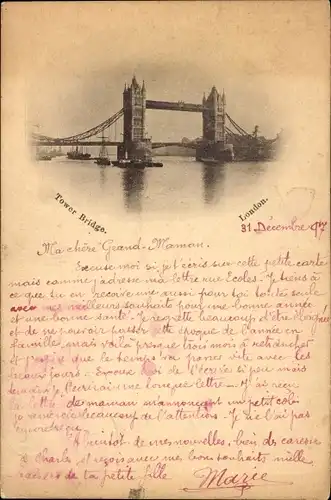 Tower Bridge.
London.
31 Décembre
Ma chère Grand-Maman.
Excuse moi si je t'écris sur cette petite carte
mais comme j'adresse ma lettre rue Ecoles - Je tiens à
ce que tu en reçoive une aussi pour toi toute seule
avec mes meilleurs souhaits pour une bonne année
et une bonne santé. Je regrette beaucoup d'être
et de ne pouvoir passer cette époque de l'année en
famille, mais voilà presque trois mois à retrancher
et j'espère que le temps va passer vite avec les
jours - Excuse moi de t'écrire si peu mais
je t'écrirai une longue lettre - J'ai reçu
la lettre de maman m'annonçant un petit colis
je remercie beaucoup de l'attention. Je ne l'ai pas
A bientôt de mes nouvelles, bien des caresses
à Charles et reçois avec me bons souhaits mille
baisers de ta petite fille Marie